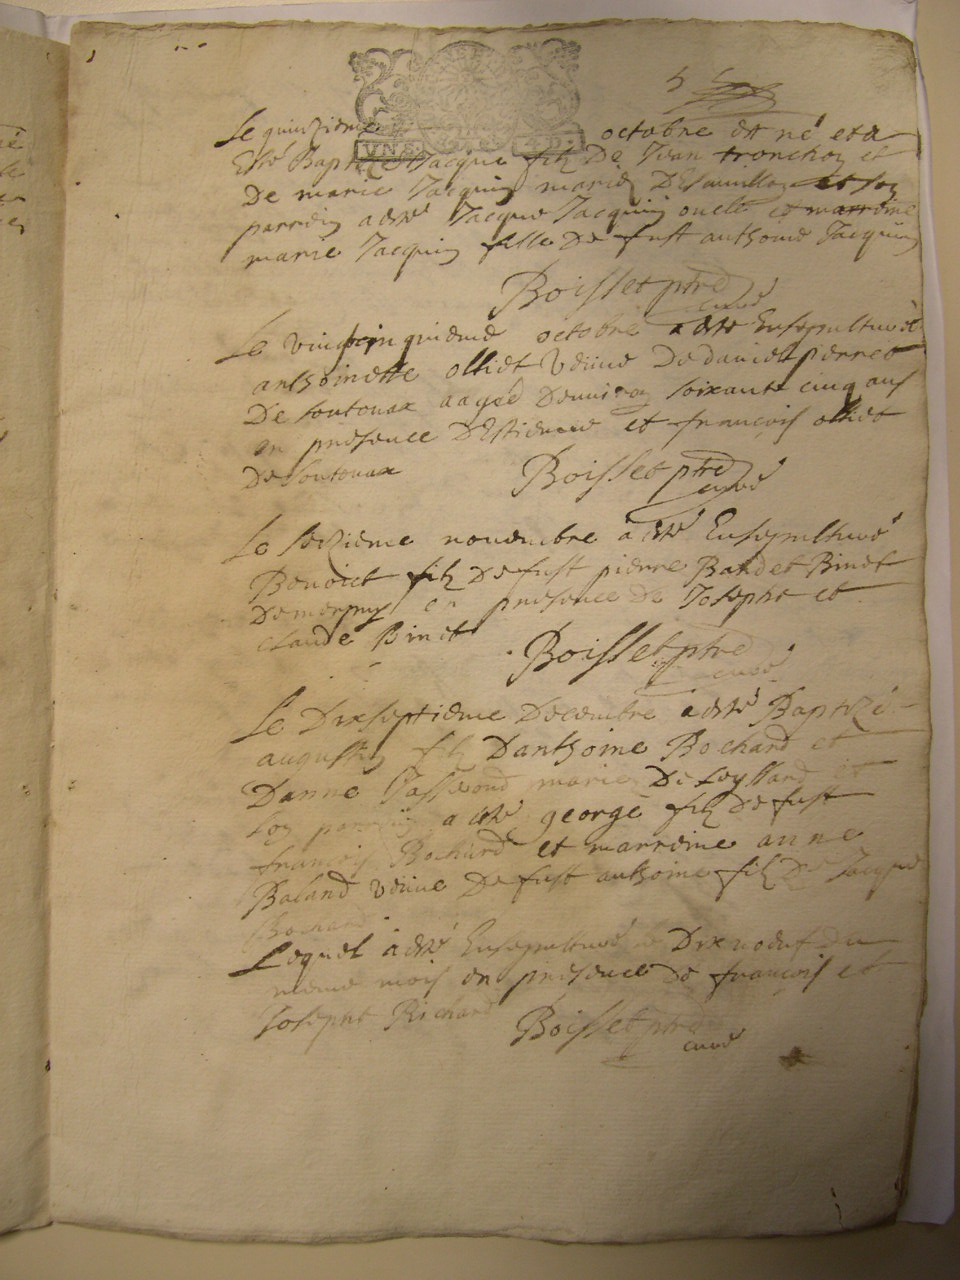 5
VN S. 4 D.
Le quinzieme octobre est né et a
Esté Baptizé Jacque filz De Jean tronchon et
De marie Jacquin mariez De
parrein a esté Jacque Jacquin oncle et marreine
marie Jacquin fille De fust anthoine Jacquin
Boisset ptre curé
Le vingtcinquieme octobre a esté Ensepulturé
anthoinette olliet veuve De davie pierret
De Contouax aagée Denviron soixante cinq ans
en presence D'Estienne et françois olliet
De Contouax Boisset ptre curé
Le seizieme novembre a esté Ensepulturé
Benoict filz De fust pierre Baudet Binet
De en presence De Joseph et
claude Binet Boisset ptre curé
Le Dixseptieme Decembre a esté Baptizé
augustin filz D'anthoine Bochard et
D'anne mariez De et
son parrein a esté george filz De fust
françois Bochard et marreine anne
Baland veuve De fust anthoine filz De Jacque
Bochard
Lequel a esté Ensepulturé le Dixneuf du
meme mois en presence De françois et
Joseph Richard Boisset ptre
curé